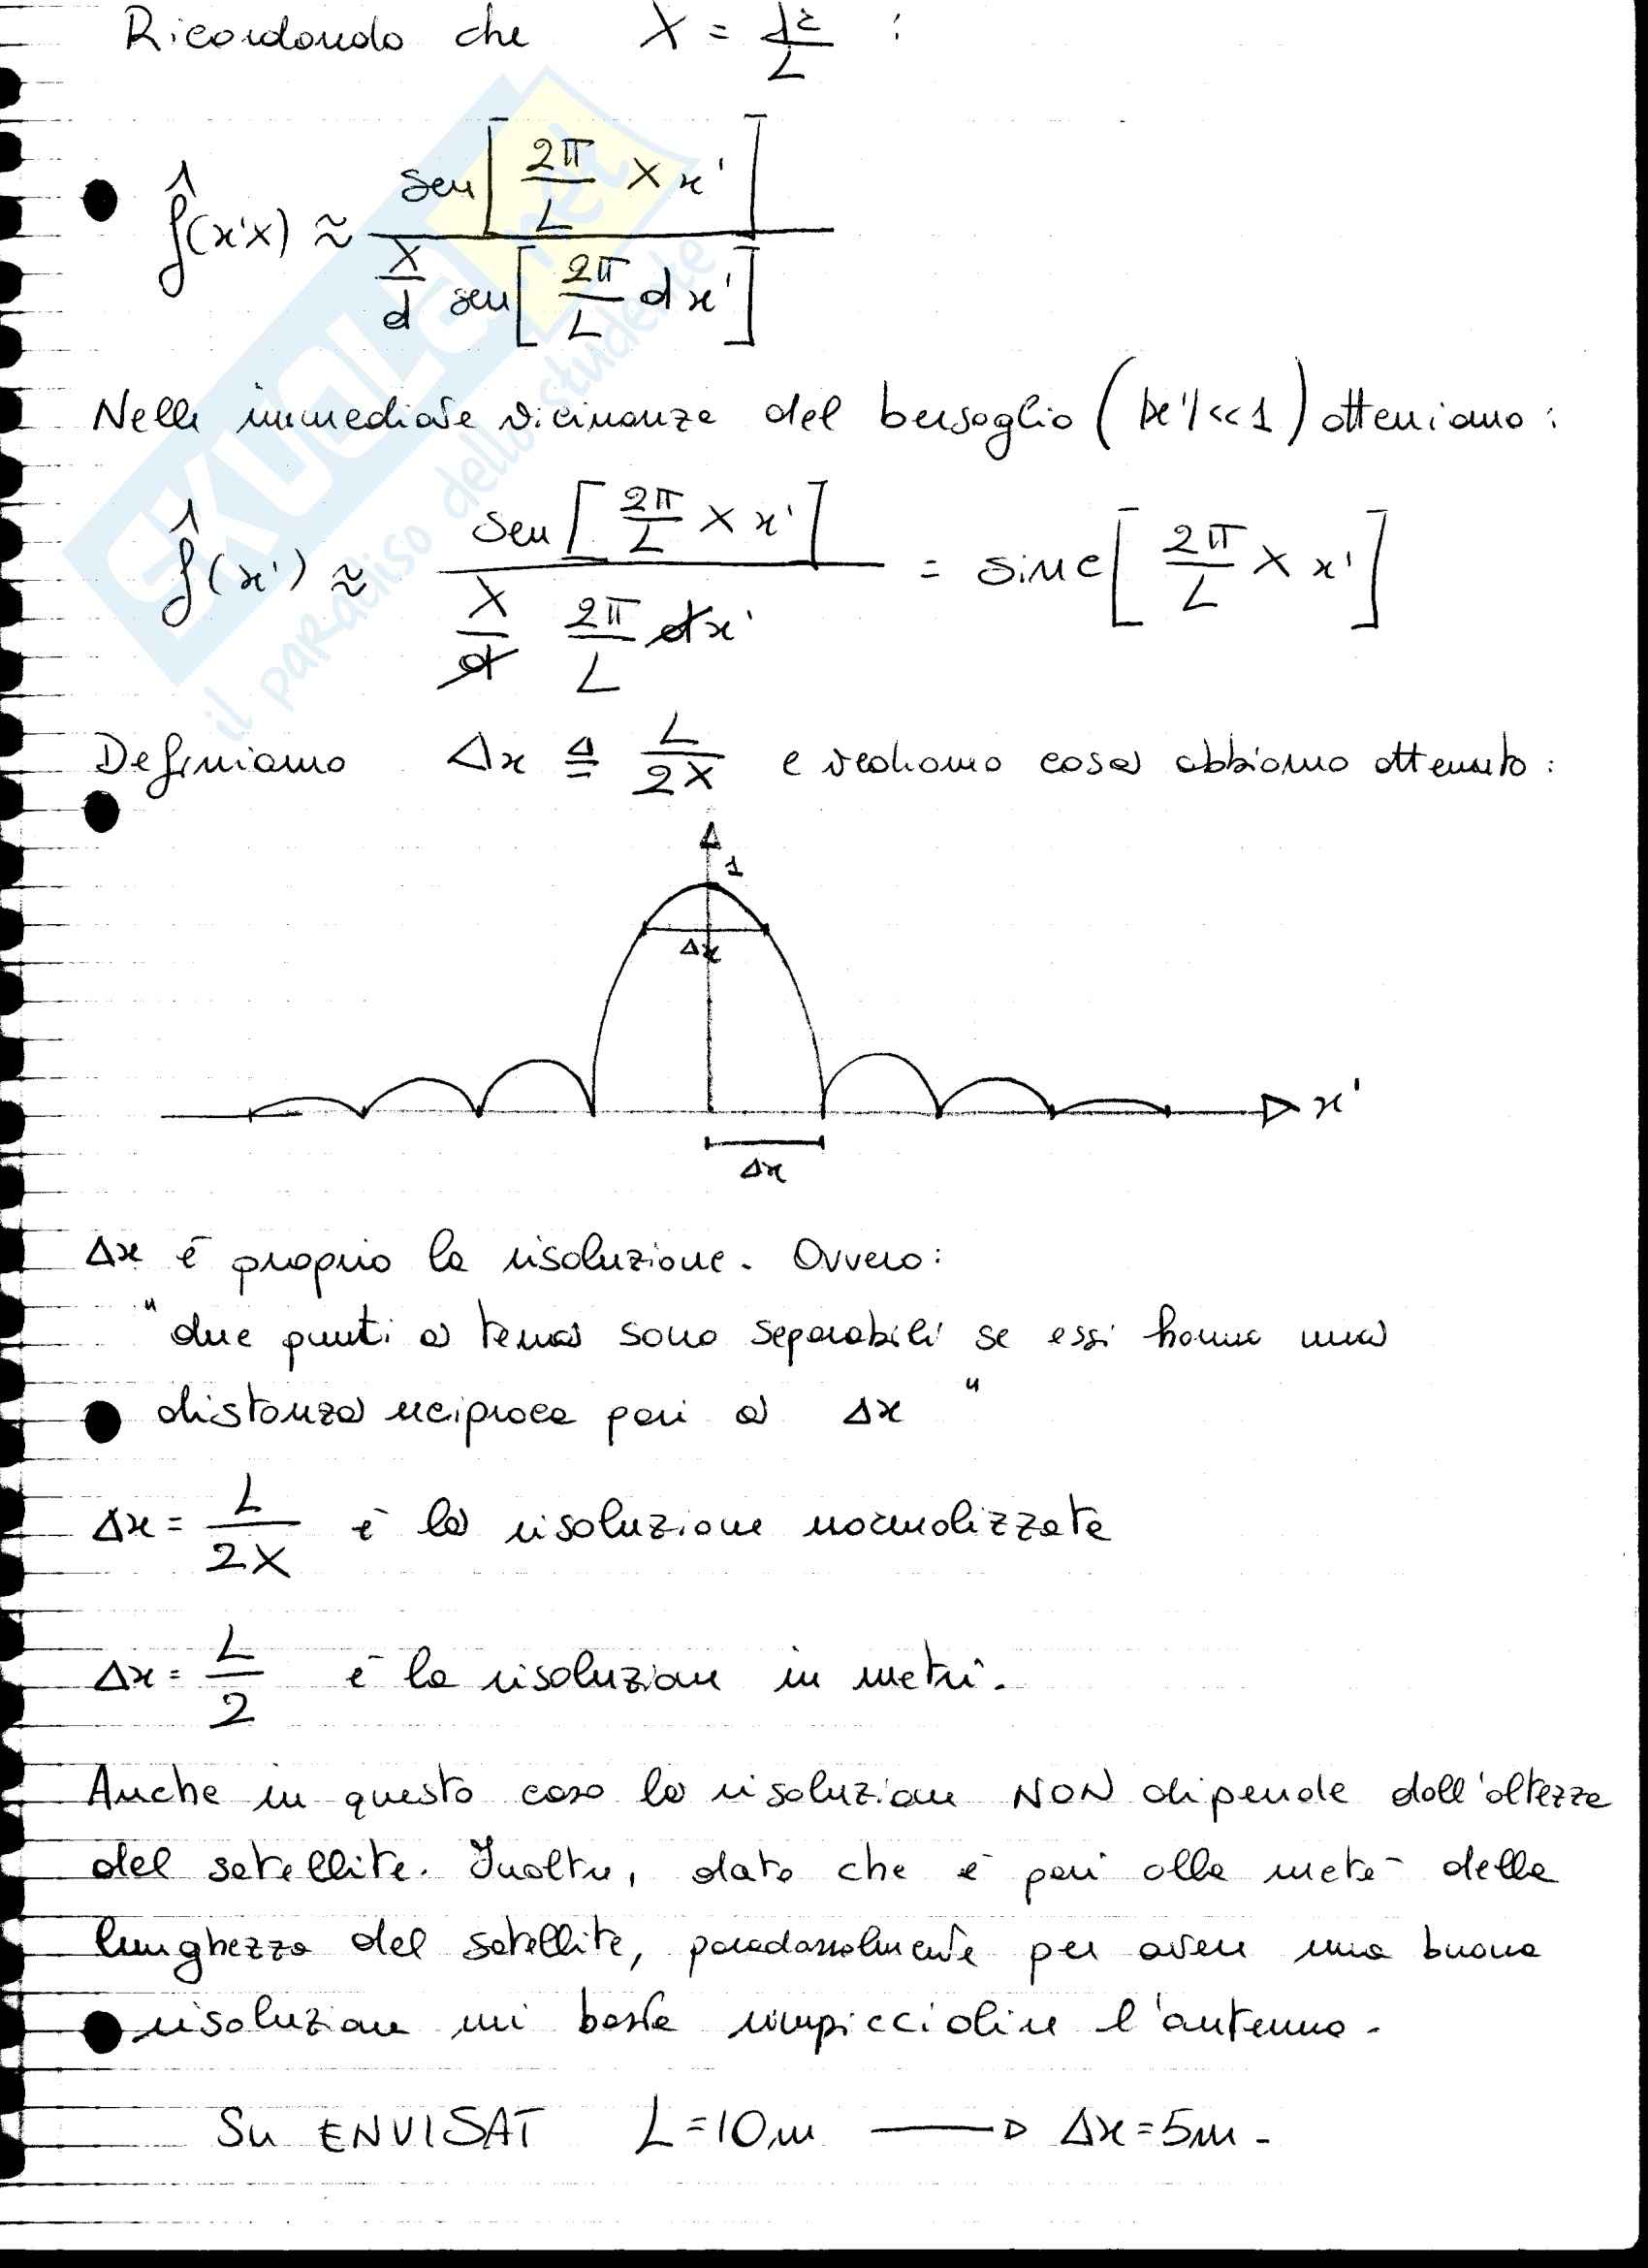 Ricordando che X = λr/L :
f̂(x'X) ≈ sen[2π/L X x'] / (X/d sen[2π/L d x'])
Nelle immediate vicinanze del bersaglio (|x'|<<1) otteniamo:
f̂(x') ≈ sen[2π/L X x'] / (X/d 2π/L dx') = sinc[2π/L X x']
Definiamo Δx ≜ L/2X e vediamo cosa abbiamo ottenuto:
1
Δx
x'
Δx
Δx è proprio la risoluzione. Ovvero:
"due punti a terra sono separabili se essi hanno una
distanza reciproca pari a Δx"
Δx = L/2X è la risoluzione normalizzata
Δx = L/2 è la risoluzione in metri.
Anche in questo caso la risoluzione NON dipende dall'altezza
del satellite. Inoltre, dato che è pari alla metà della
lunghezza del satellite, paradossalmente per avere una buona
risoluzione mi basta rimpicciolire l'antenna.
Su ENVISAT L=10m → Δx=5m.
SKUOLA.net
il paradiso dello studente